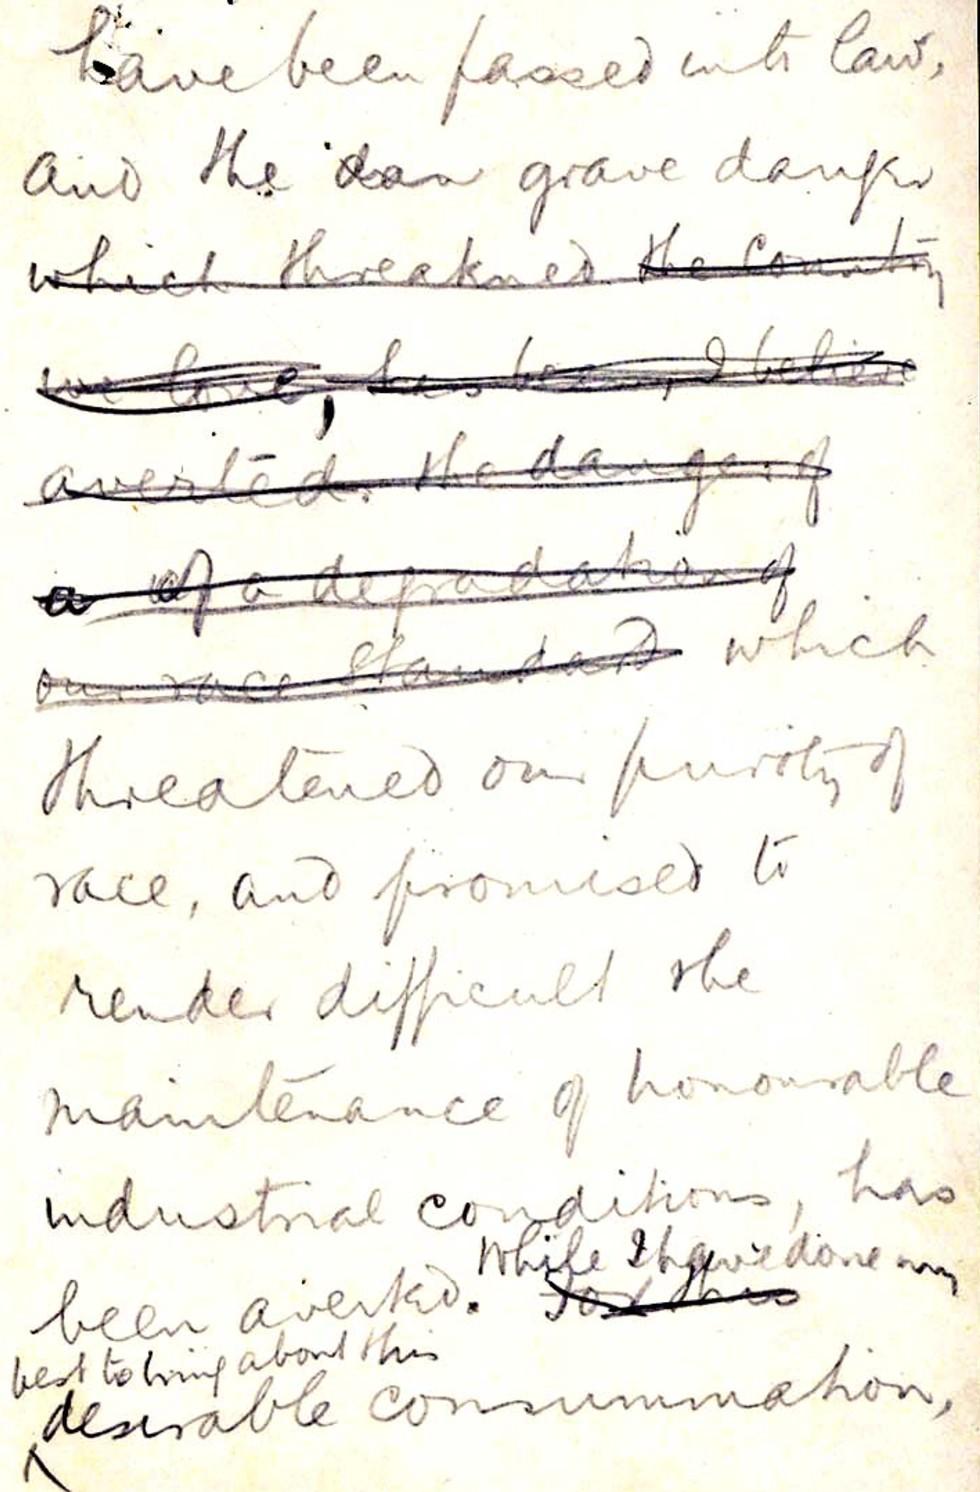 have been passed into law,
and the dan grave danger
which threatened the Country
we love, has been, I believe
averted. the danger of
a of a degradation of
our race standard which
threatened our purity of
race, and promised to
render difficult the
maintenance of honourable
industrial conditions, has
While I have done my
been averted. For this
best to bring about this
desirable consummation,